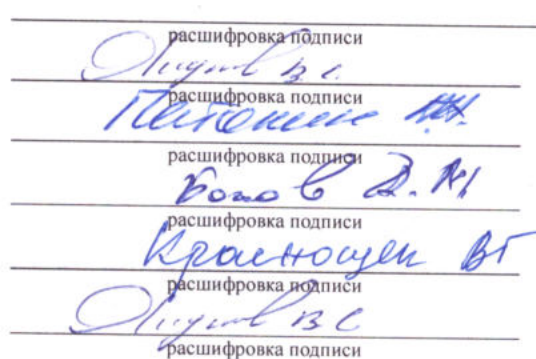 расшифровка подписи
В.С.
расшифровка подписи
расшифровка подписи
Боков В. М.
расшифровка подписи
Краснощек ВГ
расшифровка подписи
ВС
расшифровка подписи